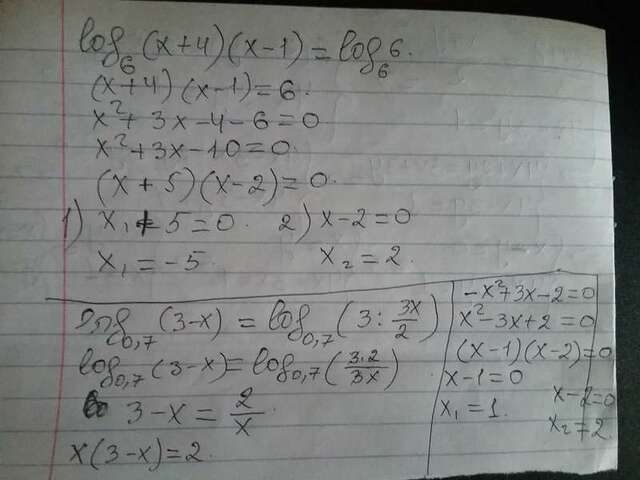 log₆(x+4)(x-1) = log₆6.
(x+4)(x-1)=6.
x²+3x-4-6=0
x²+3x-10=0.
(x+5)(x-2)=0.
1) x₁+5=0. 2) x-2=0
x₁=-5 x₂=2.
log₀,₇(3-x) = log₀,₇(3:3x/2)
log₀,₇(3-x)=log₀,₇(3·2/3x)
3-x=2/x.
x(3-x)=2.
-x²+3x-2=0
x²-3x+2=0
(x-1)(x-2)=0
x-1=0 x-2=0
x₁=1. x₂=2.